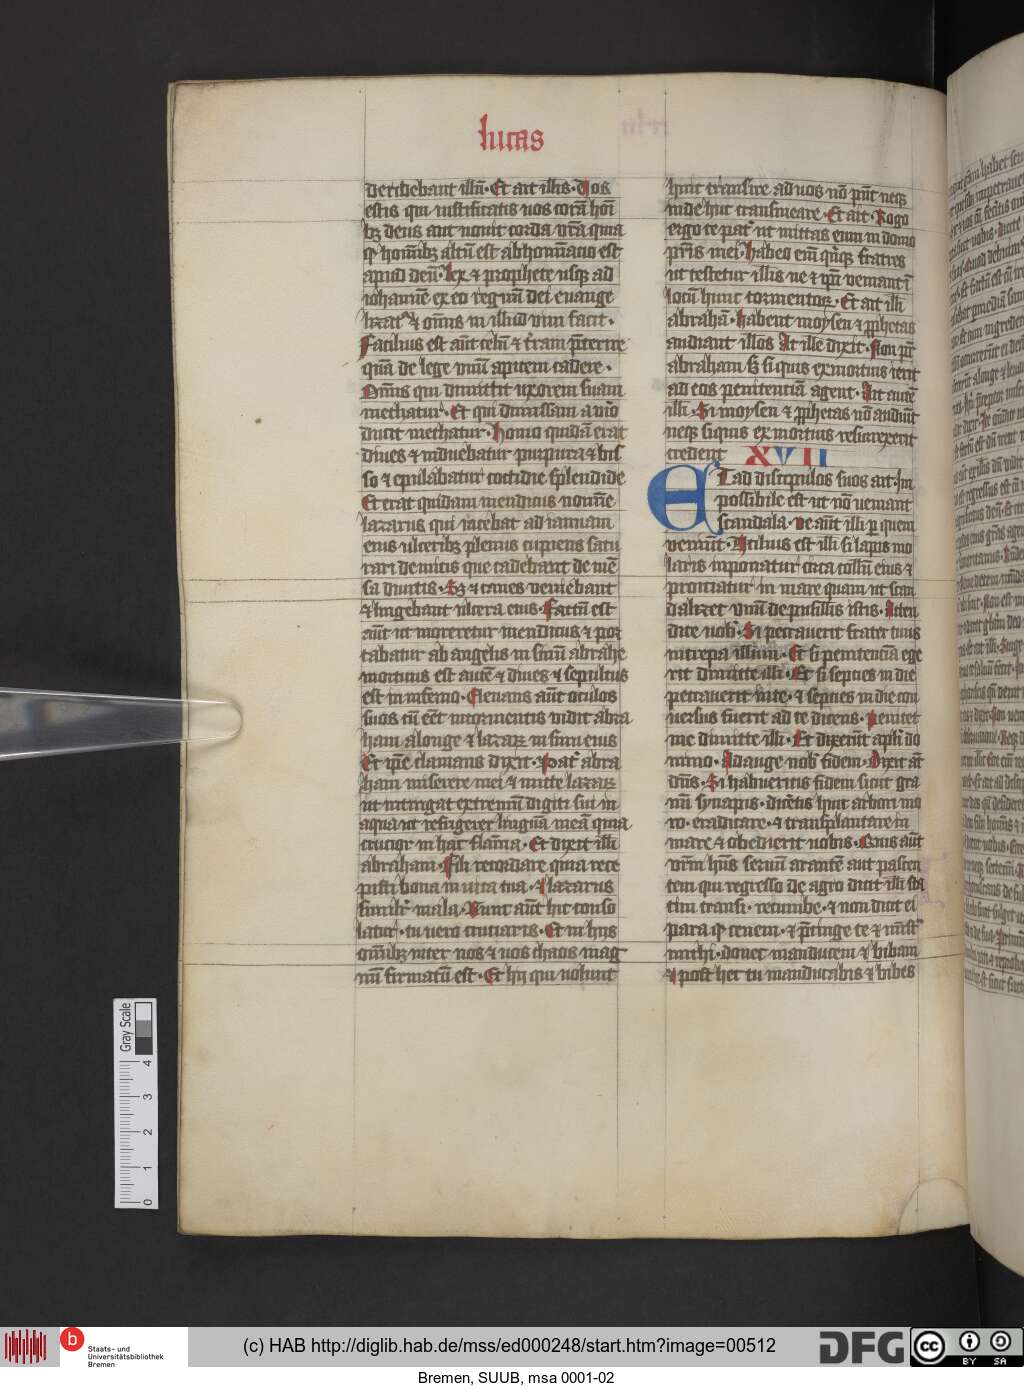 lucas
deridebant illū. Et ait illis. Vos
estis qui iustificatis uos corā hoī
bꝫ deus aut nouit corda vr̄a quia
qͥ hominibꝫ altū est abhominacio est
apud deū. Lex ⁊ prophete usqꝫ ad
iohannē ex eo regnū dei euange
lizatᷣ ⁊ om̄is in illud vim facit.
Facilius est aūt celū ⁊ t̄ram p̄terire
quā de lege vnū apicem cadere.
Omnis qui dimittit uxorem suam
mechatur. Et qui dimissam a viro
ducit mechatur. Homo quidā erat
diues ⁊ induebatur purpura ⁊ bis
so ⁊ epulabatur cottidie splendide
Et erat quidam mendicus nomīe
lazarus qui iacebat ad ianuam
eius ulceribꝫ plenus cupiens satu
rari de micis que cadebant de mē
sa diuitis. Sꝫ ⁊ canes veniebant
⁊ lingebant ulcera eius. Factū est
aūt ut moreretur mendicus ⁊ por
tabatur ab angelis in sinū abrahe
mortuus est autē ⁊ diues ⁊ sepultus
est in inferno. Eleuans aūt oculos
suos cū eēt in tormentis vidit abra
ham a longe ⁊ lazarꝫ in sinu eius
Et ip̄e clamans dixit. Pat̄ abra
ham miserere mei ⁊ mitte lazarꝫ
ut intingat extremū digiti sui in
aqua ut refrigeret linguā meā quia
crucior in hac flāma. Et dixit illi
abraham. Fili recordare quia rece
pisti bona in uita tua. ⁊ lazarus
similit̄ mala. Nunc aūt hic conso
latur. tu uero cruciaris. Et in hys
om̄ibꝫ inter nos ⁊ uos chaos mag
nū firmatū est. Et hij qui uolunt
hinc transire ad uos nō p̄nt neqꝫ
inde huc transmeare. Et ait. Rogo
ergo te pat̄ ut mittas eum in domū
pr̄is mei. habeo em̄ qͥnqꝫ fratres
ut testetur illis ne ⁊ ip̄i veniant ī
locū hunc tormentorꝫ. Et ait illi
abrahā. habent moysen ⁊ ꝓphetas
audiant illos At ille dixit. Non pr̄
abraham sꝫ si quis ex mortuis ierit
ad eos penitentiā agent. Ait autē
illi. Si moysen ⁊ ꝓphetas nō audiūt
neqꝫ si quis ex mortuis resurrexerit
credent XVII
Et ad discipulos suos ait. Im
possibile est ut nō veniant
scandala. ve aūt illi ꝑ quem
veniūt. Vtilius est illi si lapis mo
laris inponatur circa collū eius ⁊
proiciatur in mare quam ut scan
dalizet vnū de pusillis istis. Atten
dite uob̄. Si peccauerit frater tuus
increpa illum. Et si penitentiā ege
rit dimitte illi. Et si septies in die
peccauerit in te. ⁊ septies in die con
uersus fuerit ad te dicens. penitet
me dimitte illi. Et dixerūt apl̄i do
mino. Adauge nob̄ fidem. Dixit aūt
dn̄s. Si habueritis fidem sicut gra
nū synapis. dicetis huic arbori mo
ro. eradicare. ⁊ transplantare in
mare ⁊ obediet uobis. Quis aūt
vr̄m hn̄s seruū arantē aut pascen
tem qui regresso de agro dicit illi sta
tim transi. recumbe. ⁊ non dicit ei
para qͥ cenem. ⁊ p̄cinge te ⁊ mīstᷣ
michi. donec manducem ⁊ bibam
⁊ post hec tu manducabis ⁊ bibes
Gray Scale
4
3
2
1
0
b
Staats- und
Universitätsbibliothek
Bremen
(c) HAB http://diglib.hab.de/mss/ed000248/start.htm?image=00512
DFG
cc
BY SA
Bremen, SUUB, msa 0001-02